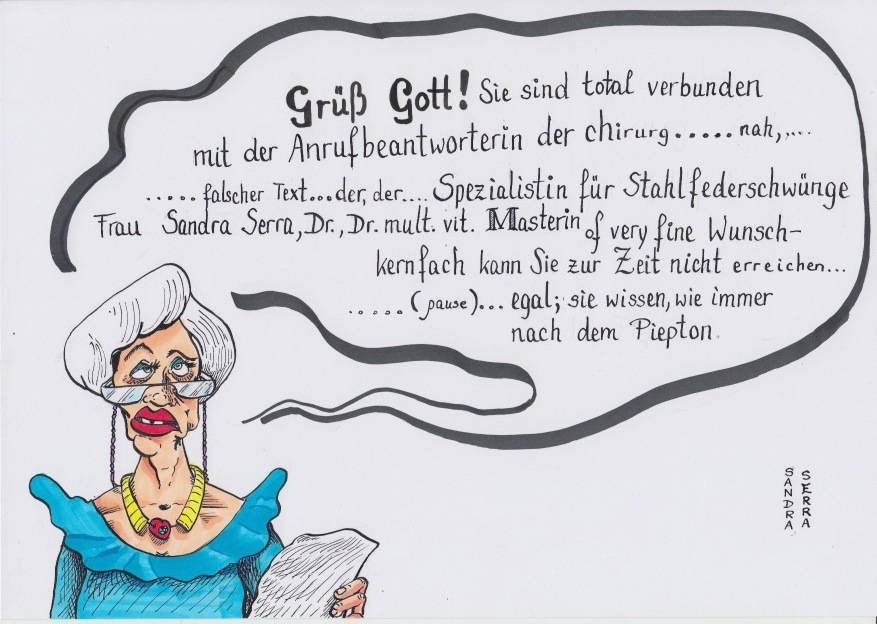 Grüß Gott! Sie sind total verbunden
mit der Anrufbeantworterin der chirurg..... nah,....
..... falscher Text...der, der.... Spezialistin für Stahlfederschwünge
Frau Sandra Serra, Dr., Dr. mult. vit. Masterin of very fine Wunsch-
kernfach kann Sie zur Zeit nicht erreichen...
..... (pause)... egal; sie wissen, wie immer
nach dem Piepton.
SANDRA
SERRA